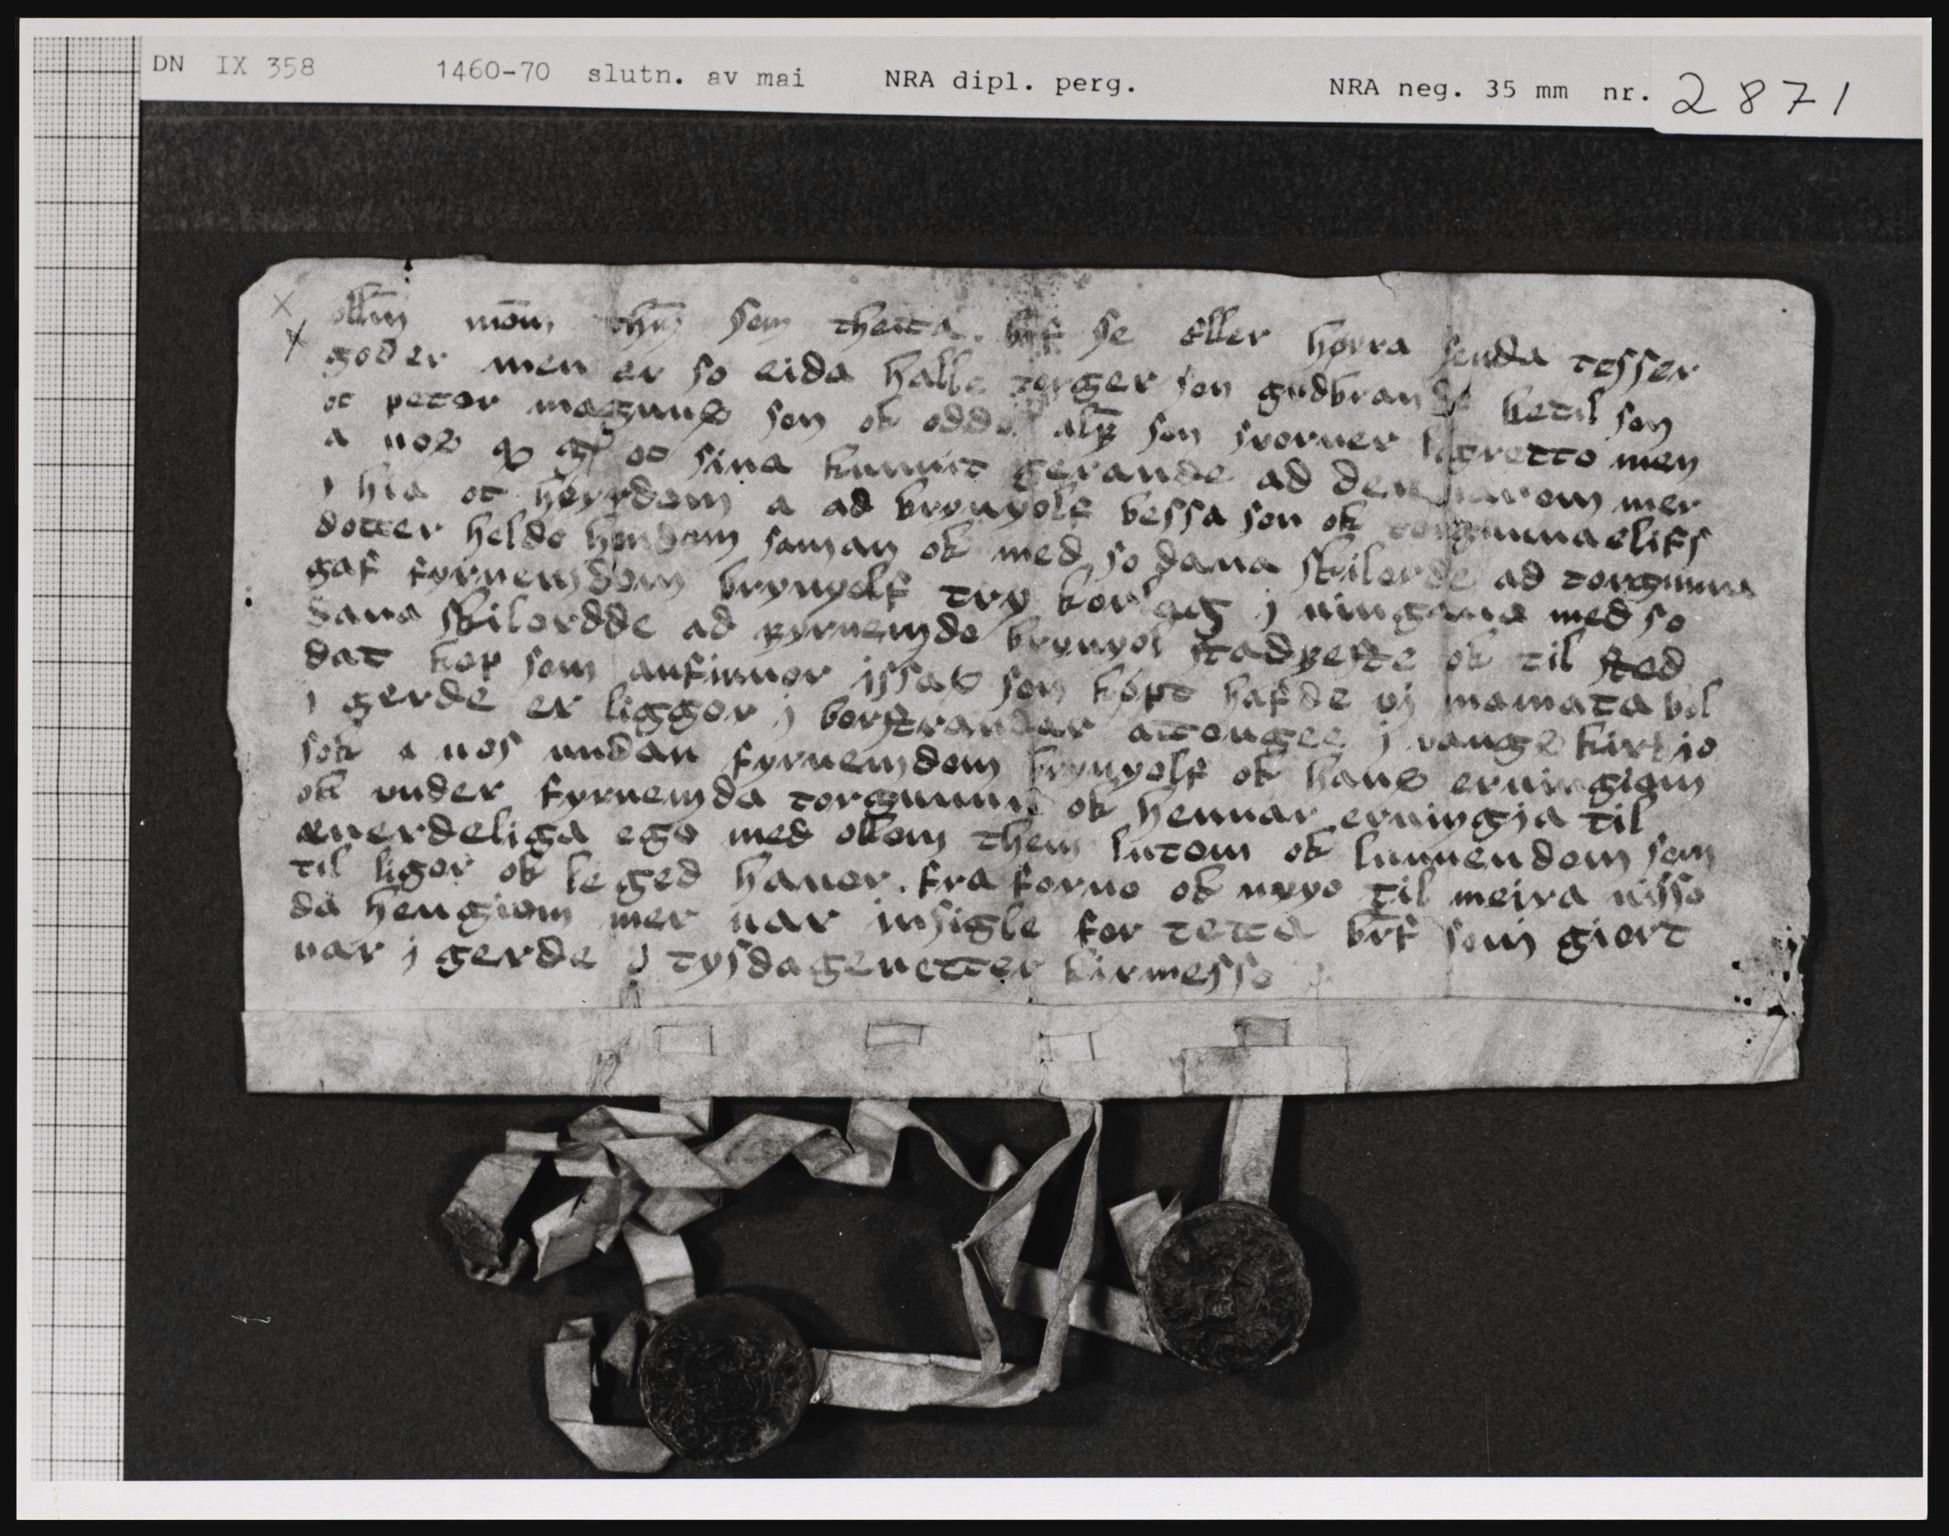 DN IX 358 1460-70 slutn. av mai NRA dipl. perg. NRA neg. 35 mm nr. 2871
ollm mōm thm sem thetta brf se eller hørra senda tesser
goder men er so eida halle torger son gudbrand ketil son
ok peter magnus son ok oddo alf son svorner logretto men
a nos q g ok sina kunnict gerande ad der varom mer
j hia ok høyrdom a ad brynyolf bessa son ok torgunna elifs
dotter heldo hondom saman ok med so dana skilorde ad torgunna
gaf fyrnemdom brynyolf try korlag j uingana med so
dana skilordde ad fyrnemdo brynyol stadfeste ok til sted
dat kop som anfinnor issak son køpt hafde vj mamata bol
j gerde er liggor j borstrandar attongee j vangs kirkio
sok a nos undan fyrnemdom brynyolf ok hans erningiom
ok vnder fyrnemda torgunnu ok hennar erningia til
æuerdeliga ego med ollom them lutom ok lunnendom sem
til ligor ok leged hauer fra forno ok nyyo til meira uisso
da hengiom mer uar insigle for tetta brf som giort
uar j gerde j tysdagenetter kirmesso